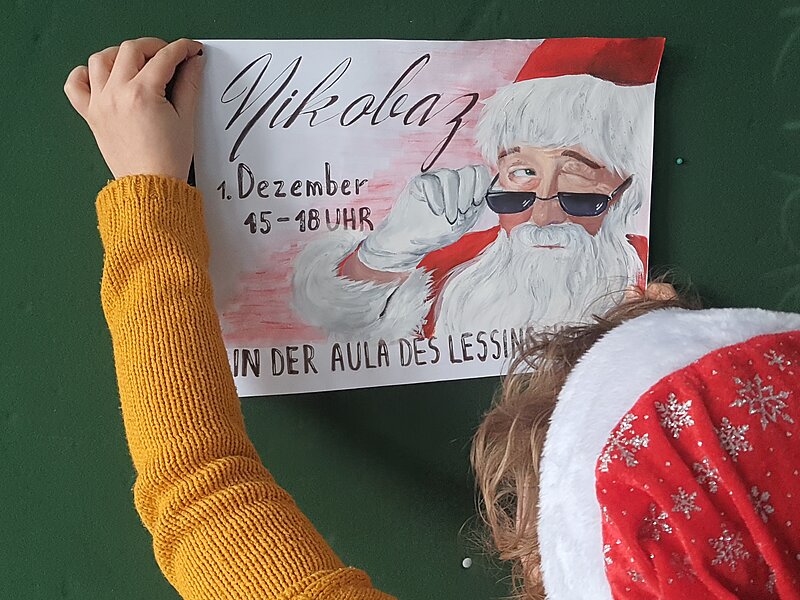 Nikobaz
1. Dezember
15-18 UHR
IN DER AULA DES